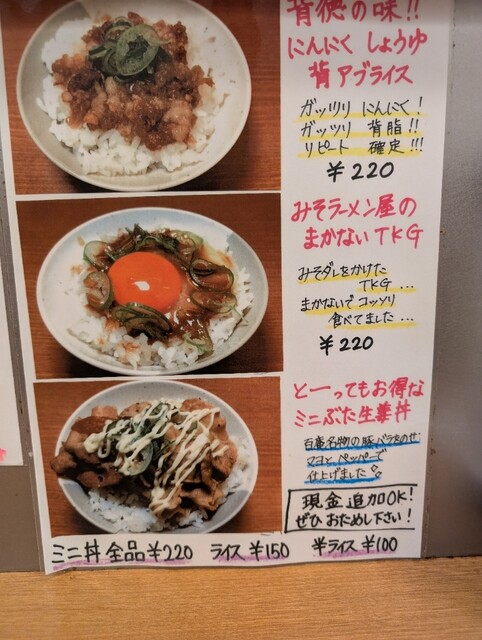 背徳の味!!
にんにく しょうゆ
背アブライス
ガッツリ にんにく!
ガッツリ 背脂!!
リピート 確定!!!
¥220
みそラーメン屋の
まかないTKG
みそダレをかけた
TKG...
まかないでコッソリ
食べてました...
¥220
とーってもお得な
ミニぶた生姜丼
名物の豚バラをのせ
マヨとペッパーで
仕上げました
現金追加OK!
ぜひおためし下さい!
ミニ丼 全品¥220 ライス ¥150 半ライス ¥100